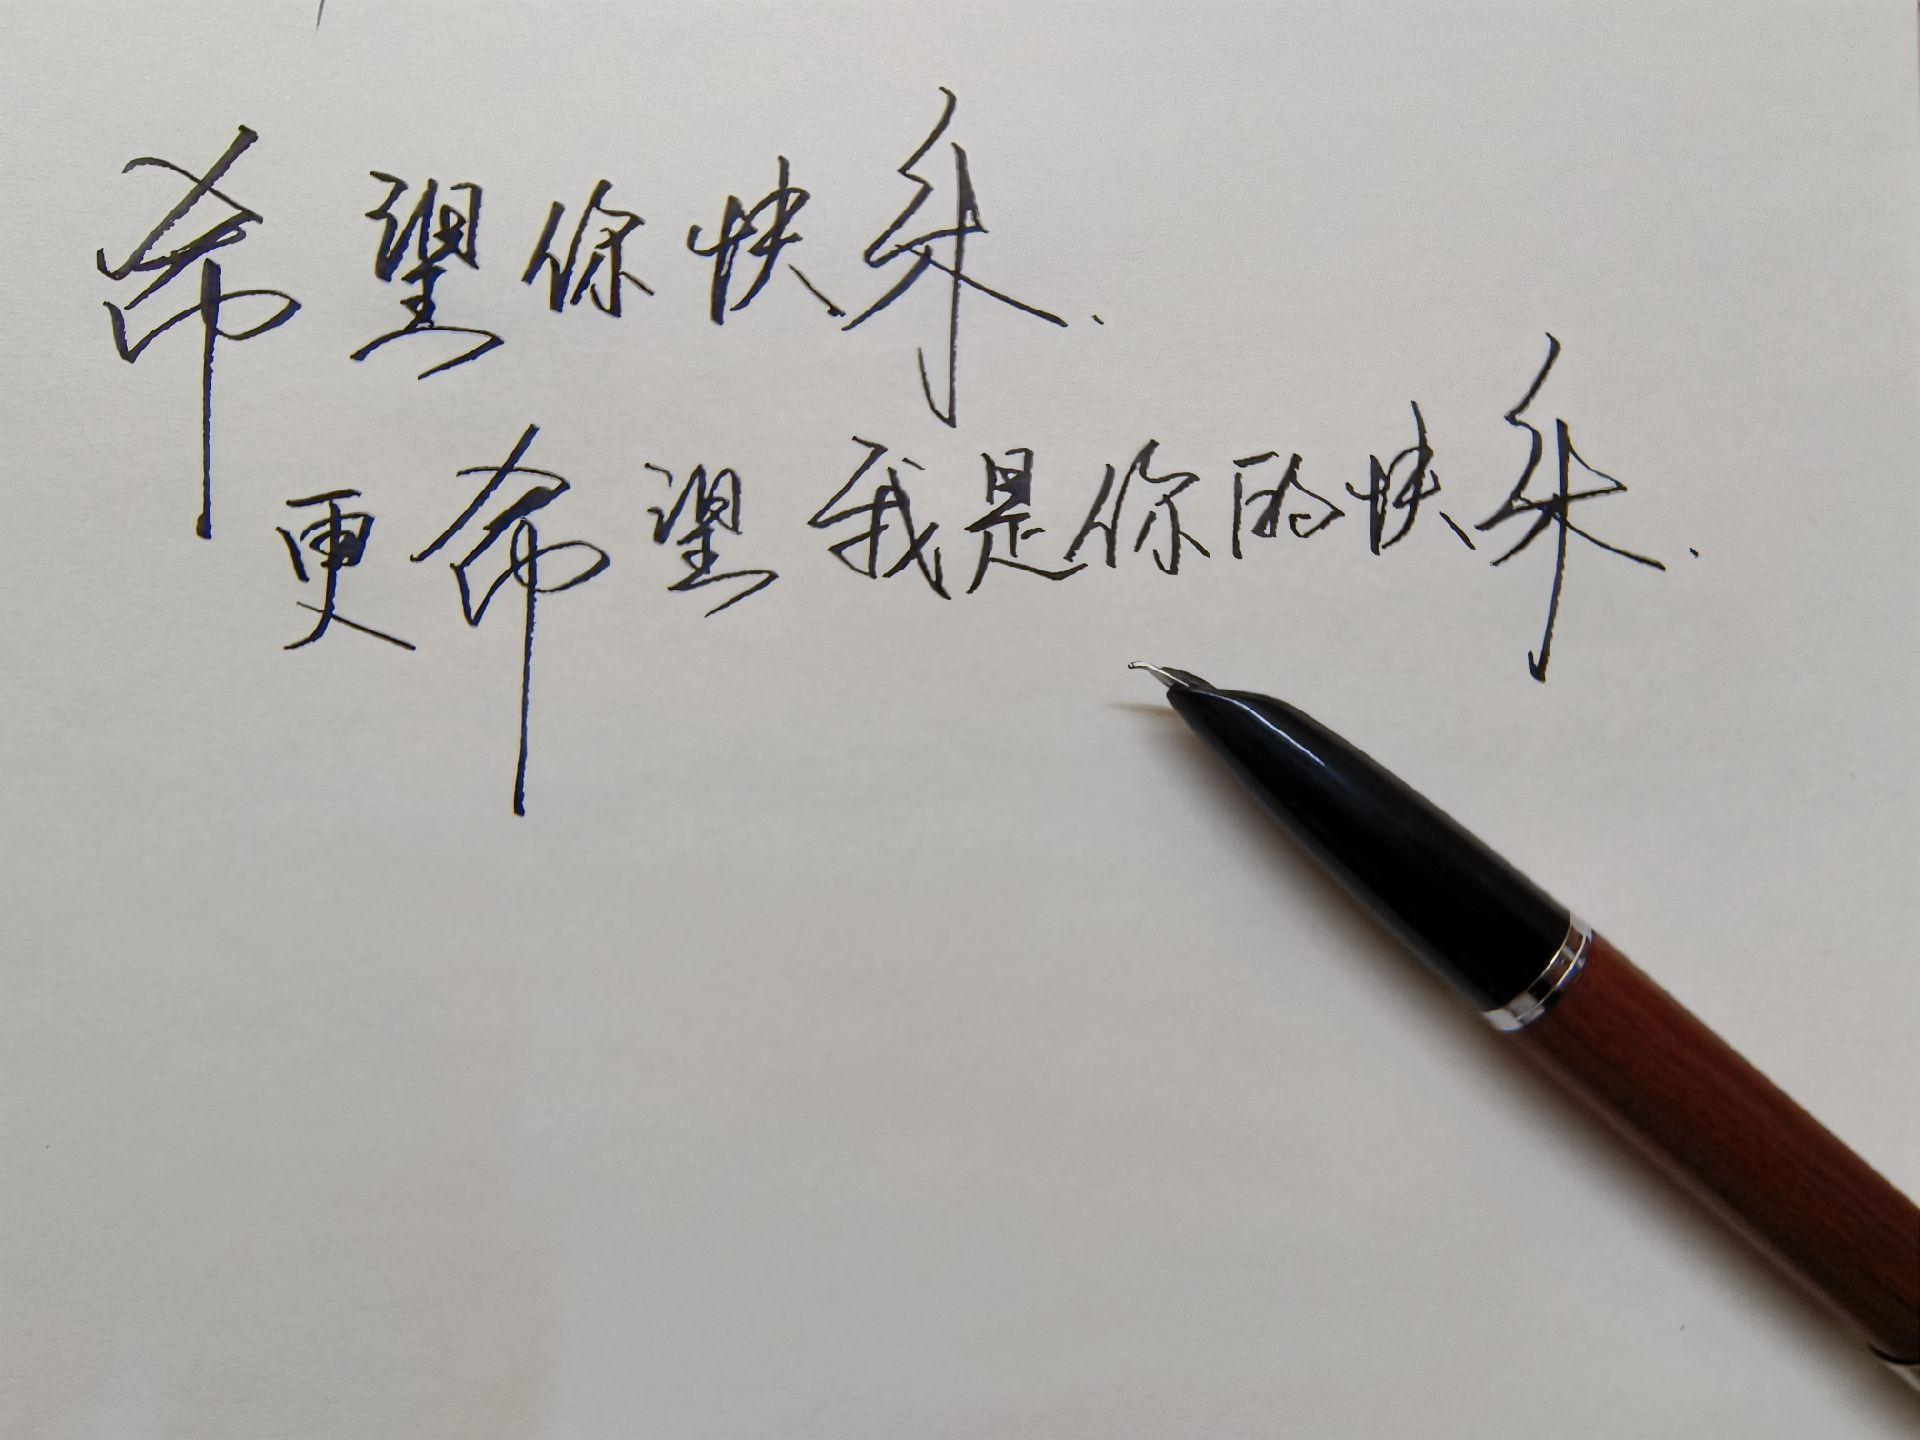 希望你快乐.
更希望我是你的快乐.